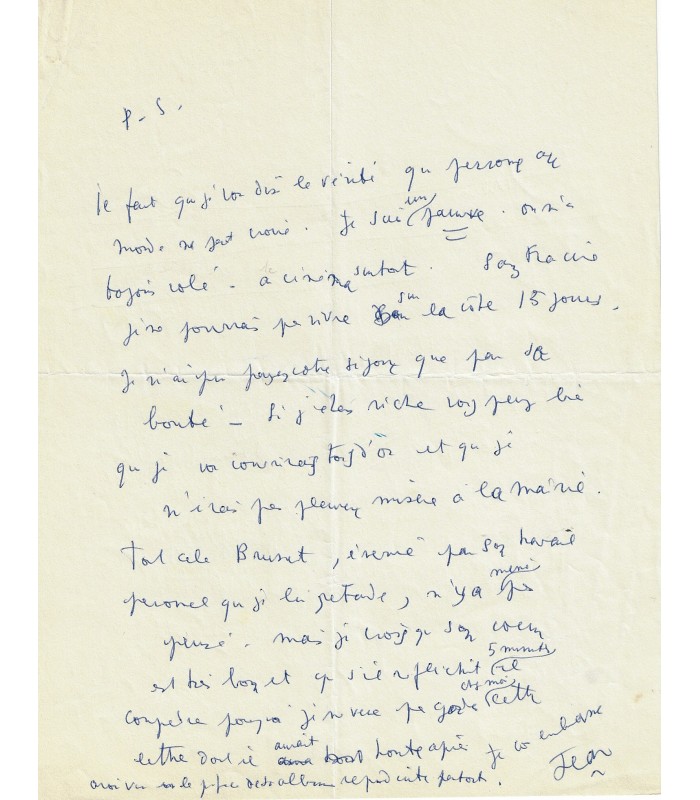 P.S.
Il faut que je vous dise la vérité que personne au
monde ne peut croire. Je suis un pauvre. on m'a
toujours volé - au cinéma surtout. Sans Francine
je ne pourrais pas vivre sur la côte 15 jours.
Je n'ai pu payer votre séjour que par sa
bonté - Si j'étais riche vous pensez bien
que je vous couvrirais tous d'or et que je
n'irais pas pleurer misère à la mairie.
Tout cela Brusset, énervé par son travail
personnel que je lui retarde, n'y a même pas
pensé. mais je crois que son cœur
est très bon et que s'il réfléchit 5 minutes il
comprendra pourquoi je ne veux pas garder chez moi cette
lettre dont il aurait honte après Je vous embrasse
Jean